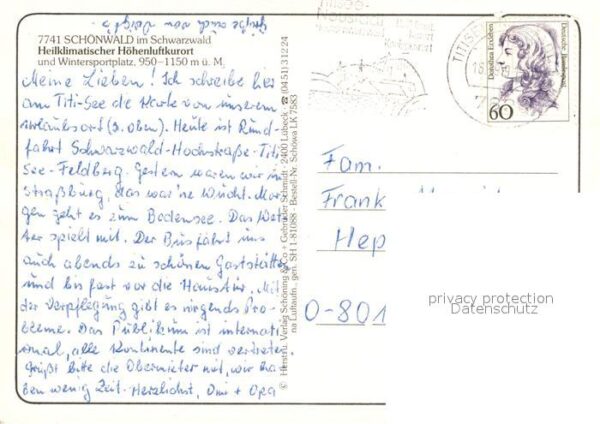 7741 SCHÖNWALD im Schwarzwald
Heilklimatischer Höhenluftkurort
und Wintersportplatz, 950–1150 m ü. M.
Meine Lieben! Ich schreibe hier
am Titi-See die Karte von unserem
Urlaubsort (s. oben). Heute ist Rund-
fahrt Schwarzwald-Hochstraße-Titi-
See-Feldberg. Gestern waren wir in
Straßburg, das war 'ne Wucht. Mor-
gen geht es zum Bodensee. Das Wet-
ter spielt mit. Der Bus fährt uns
auch abends zu schönen Gaststätten
und bis fast vor die Haustür. Mit
der Verpflegung gibt es nirgends Pro-
bleme. Das Publikum ist internati-
onal, alle Kontinente sind vertreten.
Grüßt bitte die Obermieter mit, wir ha-
ben wenig Zeit. Herzlichst, Omi + Opa
Grüße auch von
© Herst. u. Verlag Schöning & Co + Gebrüder Schmidt · 2400 Lübeck · ☎ (04 51) 3 12 24
na Luftaufn., gen. SH 1-81088 · Bestell-Nr. Schöwa LK 7583
TITIS
Dorothea Erxleben
Deutsche Bundespost
60
Fam.
Frank
Hep
O-801
privacy protection
Datenschutz